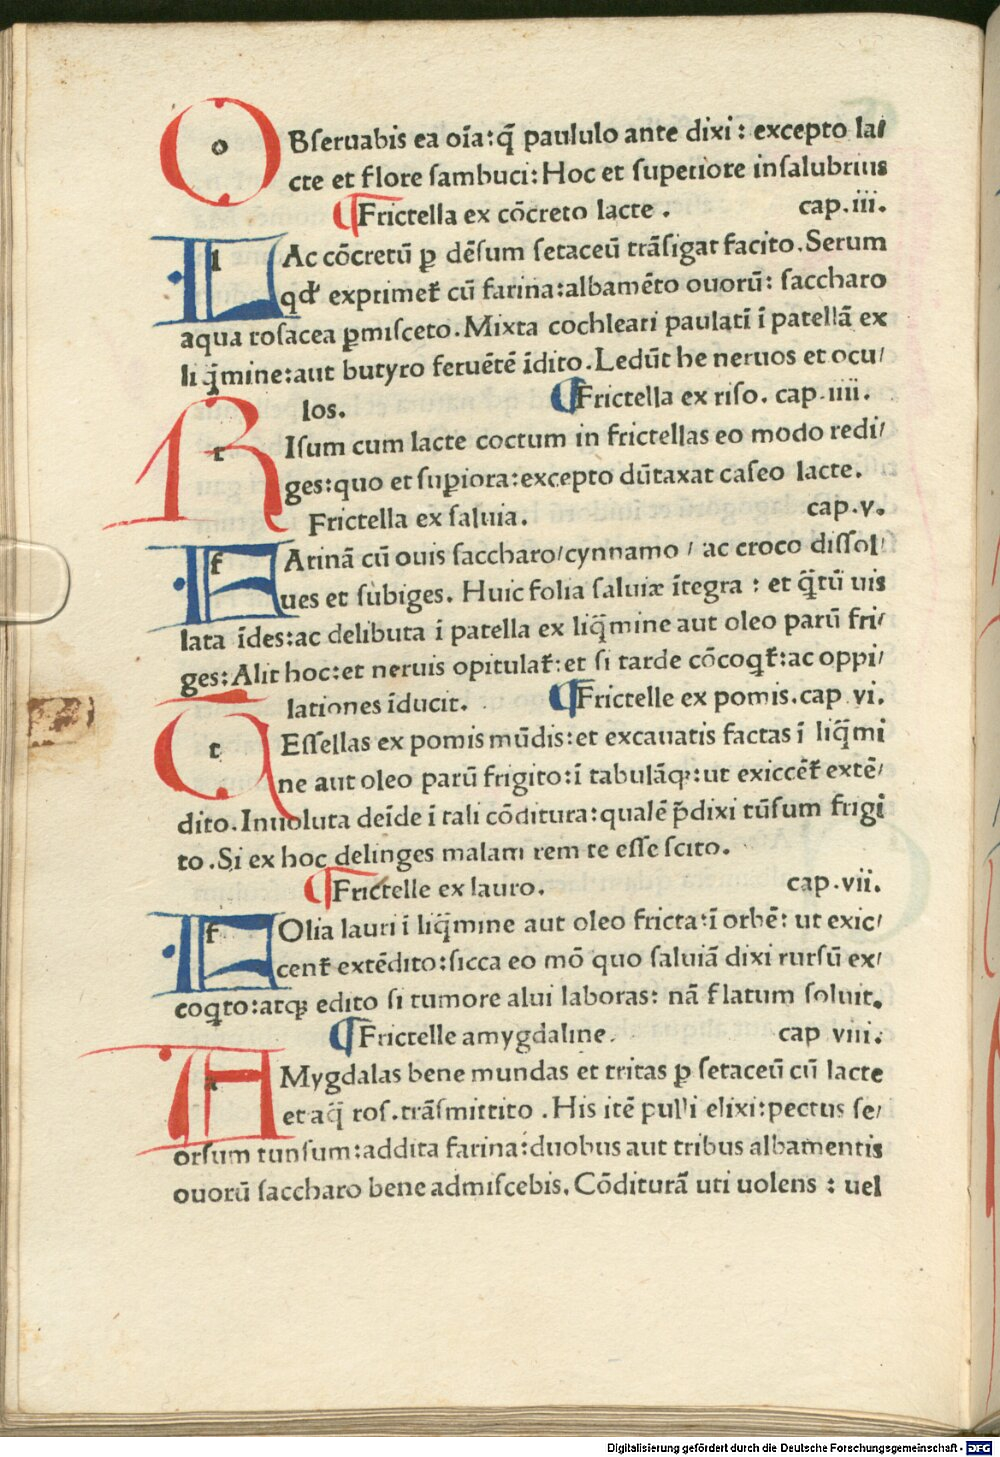 OBſeruabis ea oīa: q̄ paululo ante dixi: excepto la/
cte et flore ſambuci: Hoc et ſuperiore inſalubrius
¶Frictella ex cōcreto lacte. cap.iii.
LAc cōcretū ꝑ dēſum ſetaceū trāſigat facito. Serum
qđ exprimet᷑ cū farina: albamēto ouorū: ſaccharo
aqua roſacea ꝑmiſceto. Mixta cochleari paulatī ī patellā ex
liq̄mine: aut butyro feruētē īdito. Ledūt he neruos et ocu/
los. ¶Frictella ex riſo. cap.iiii.
RIſum cum lacte coctum in frictellas eo modo redi/
ges: quo et ſuꝑiora: excepto dūtaxat caſeo lacte.
Frictella ex ſaluia. cap.v.
FArinā cū ouis ſaccharo/cynnamo/ ac croco diſſol/
ues et ſubiges. Huic folia ſaluiæ ītegra: et q̄tū uis
lata īdes: ac delibuta ī patella ex liq̄mine aut oleo parū fri/
ges: Alit hoc: et neruis opitulat᷑: et ſi tarde cōcoqt᷑: ac oppi/
lationes īducit. ¶Frictelle ex pomis. cap vi.
TEſſellas ex pomis mūdis: et excauatis factas ī liq̄mi
ne aut oleo parū frigito: ī tabulāqꝫ: ut exiccēt᷑ extē/
dito. Inuoluta deīde ī tali cōditura: qualē p̄dixi tūſum frigi
to. Si ex hoc delinges malam rem te eſſe ſcito.
¶Frictelle ex lauro. cap.vii.
FOlia lauri ī liq̄mine aut oleo fricta: ī orbē: ut exic/
cent᷑ extēdito: ſicca eo mō quo ſaluiā dixi rurſū ex/
coqto: atqꝫ edito ſi tumore alui laboras: nā flatum ſoluit.
¶Frictelle amygdaline. cap viii.
AMygdalas bene mundas et tritas ꝑ ſetaceū cū lacte
et aq̄ roſ. trāſmittito. His itē pulli elixi: pectus ſe/
orſum tunſum: addita farina: duobus aut tribus albamentis
ouorū ſaccharo bene admiſcebis. Cōditurā uti uolens: uel
Digitalisierung gefördert durch die Deutsche Forschungsgemeinschaft - DFG